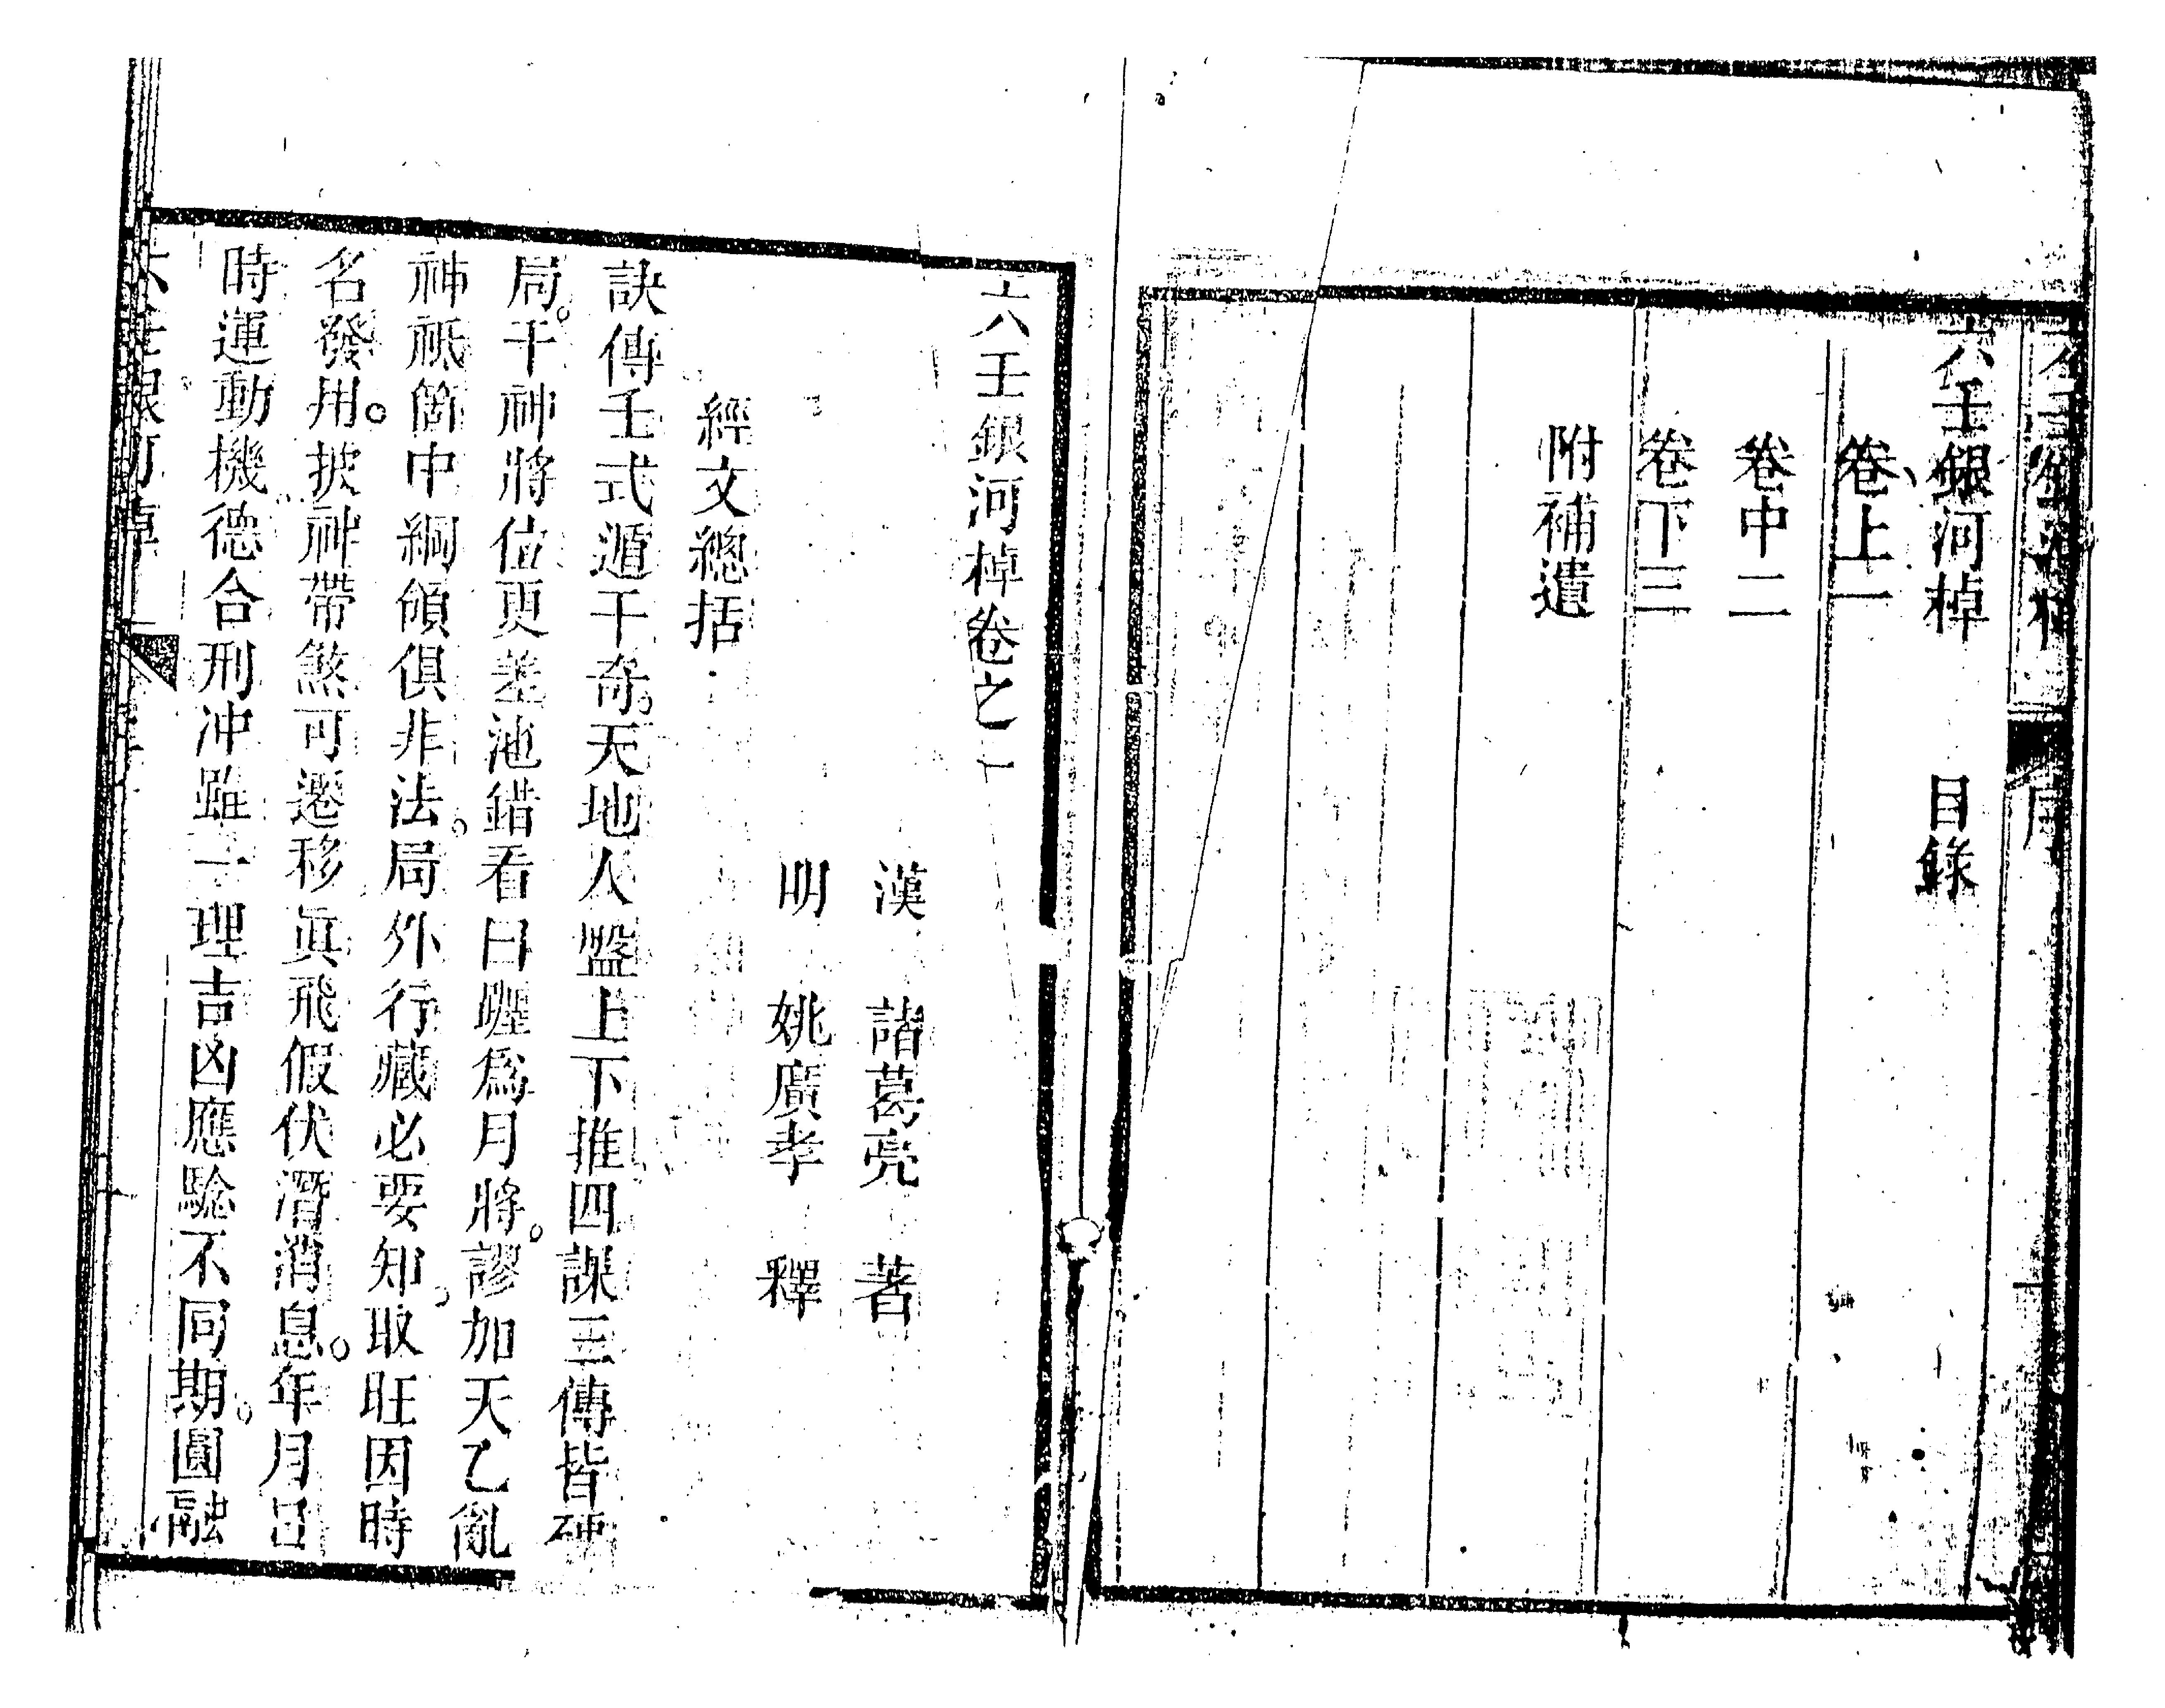 六壬銀河棹　目錄
卷上一
卷中二
卷下三
附補遺
六壬銀河棹卷之一
漢　諸葛亮　著
明　姚廣孝　釋
經文總括
訣傳壬式遁干奇。天地人盤上下推四課三傳皆硬
局。干神將值更差池錯看日躔爲月將。謬加天乙亂
神祇箇中綱領俱非法。局外行藏必要知。取旺因時
名發用。披神帶煞可遷移眞飛假伏潛消息。年月日
時運動機德合刑冲雖一理吉凶應驗不同期。圓融
六壬銀河棹